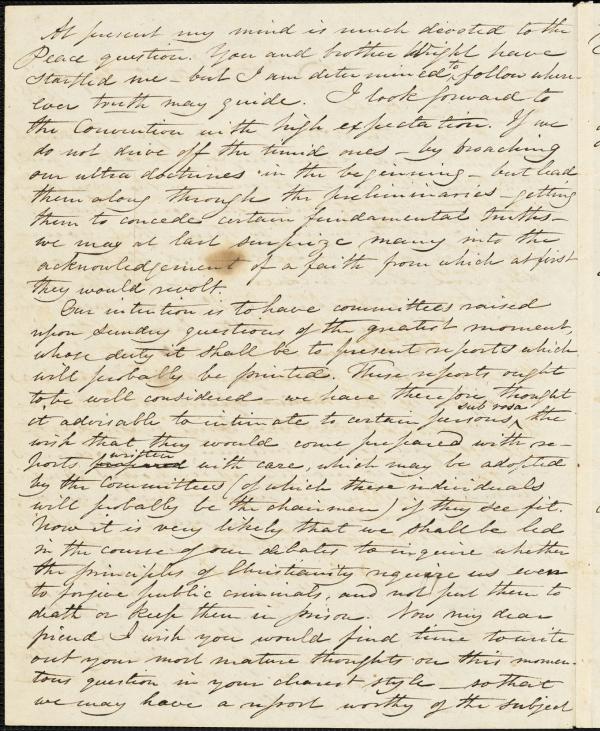 At present my mind is much devoted to the
Peace question. You and brother Wright have
startled me - but I am determined to follow wher-
ever truth may guide. I look forward to
the Convention with high expectation. If we
do not drive off the timid ones - by broaching
our ultra doctrines in the beginning - but lead
them along through the preliminaries - getting
them to concede certain fundamental truths -
we may at last surprize many into the
acknowledgement of a faith from which at first
they would revolt.
Our intention is to have committees raised
upon sundry questions of the greatest moment,
whose duty it shall be to present reports which
will probably be printed. These reports ought
to be well considered - we have therefore thought
it advisable to intimate to certain persons, sub rosa the
wish that they would come prepared with re-
ports prepared written with care, which may be adopted
by the Committees (of which these individuals
will probably be the chairmen) if they see fit.
Now it is very likely that we shall be led
in the course of our debates to inquire whether
the principles of Christianity require us even
to forgive public criminals, and not put them to
death or keep them in prison. Now my dear
friend I wish you would find time to write
out your most mature thoughts on this momen-
tous question in your clearest style - so that
we may have a report worthy of the subject